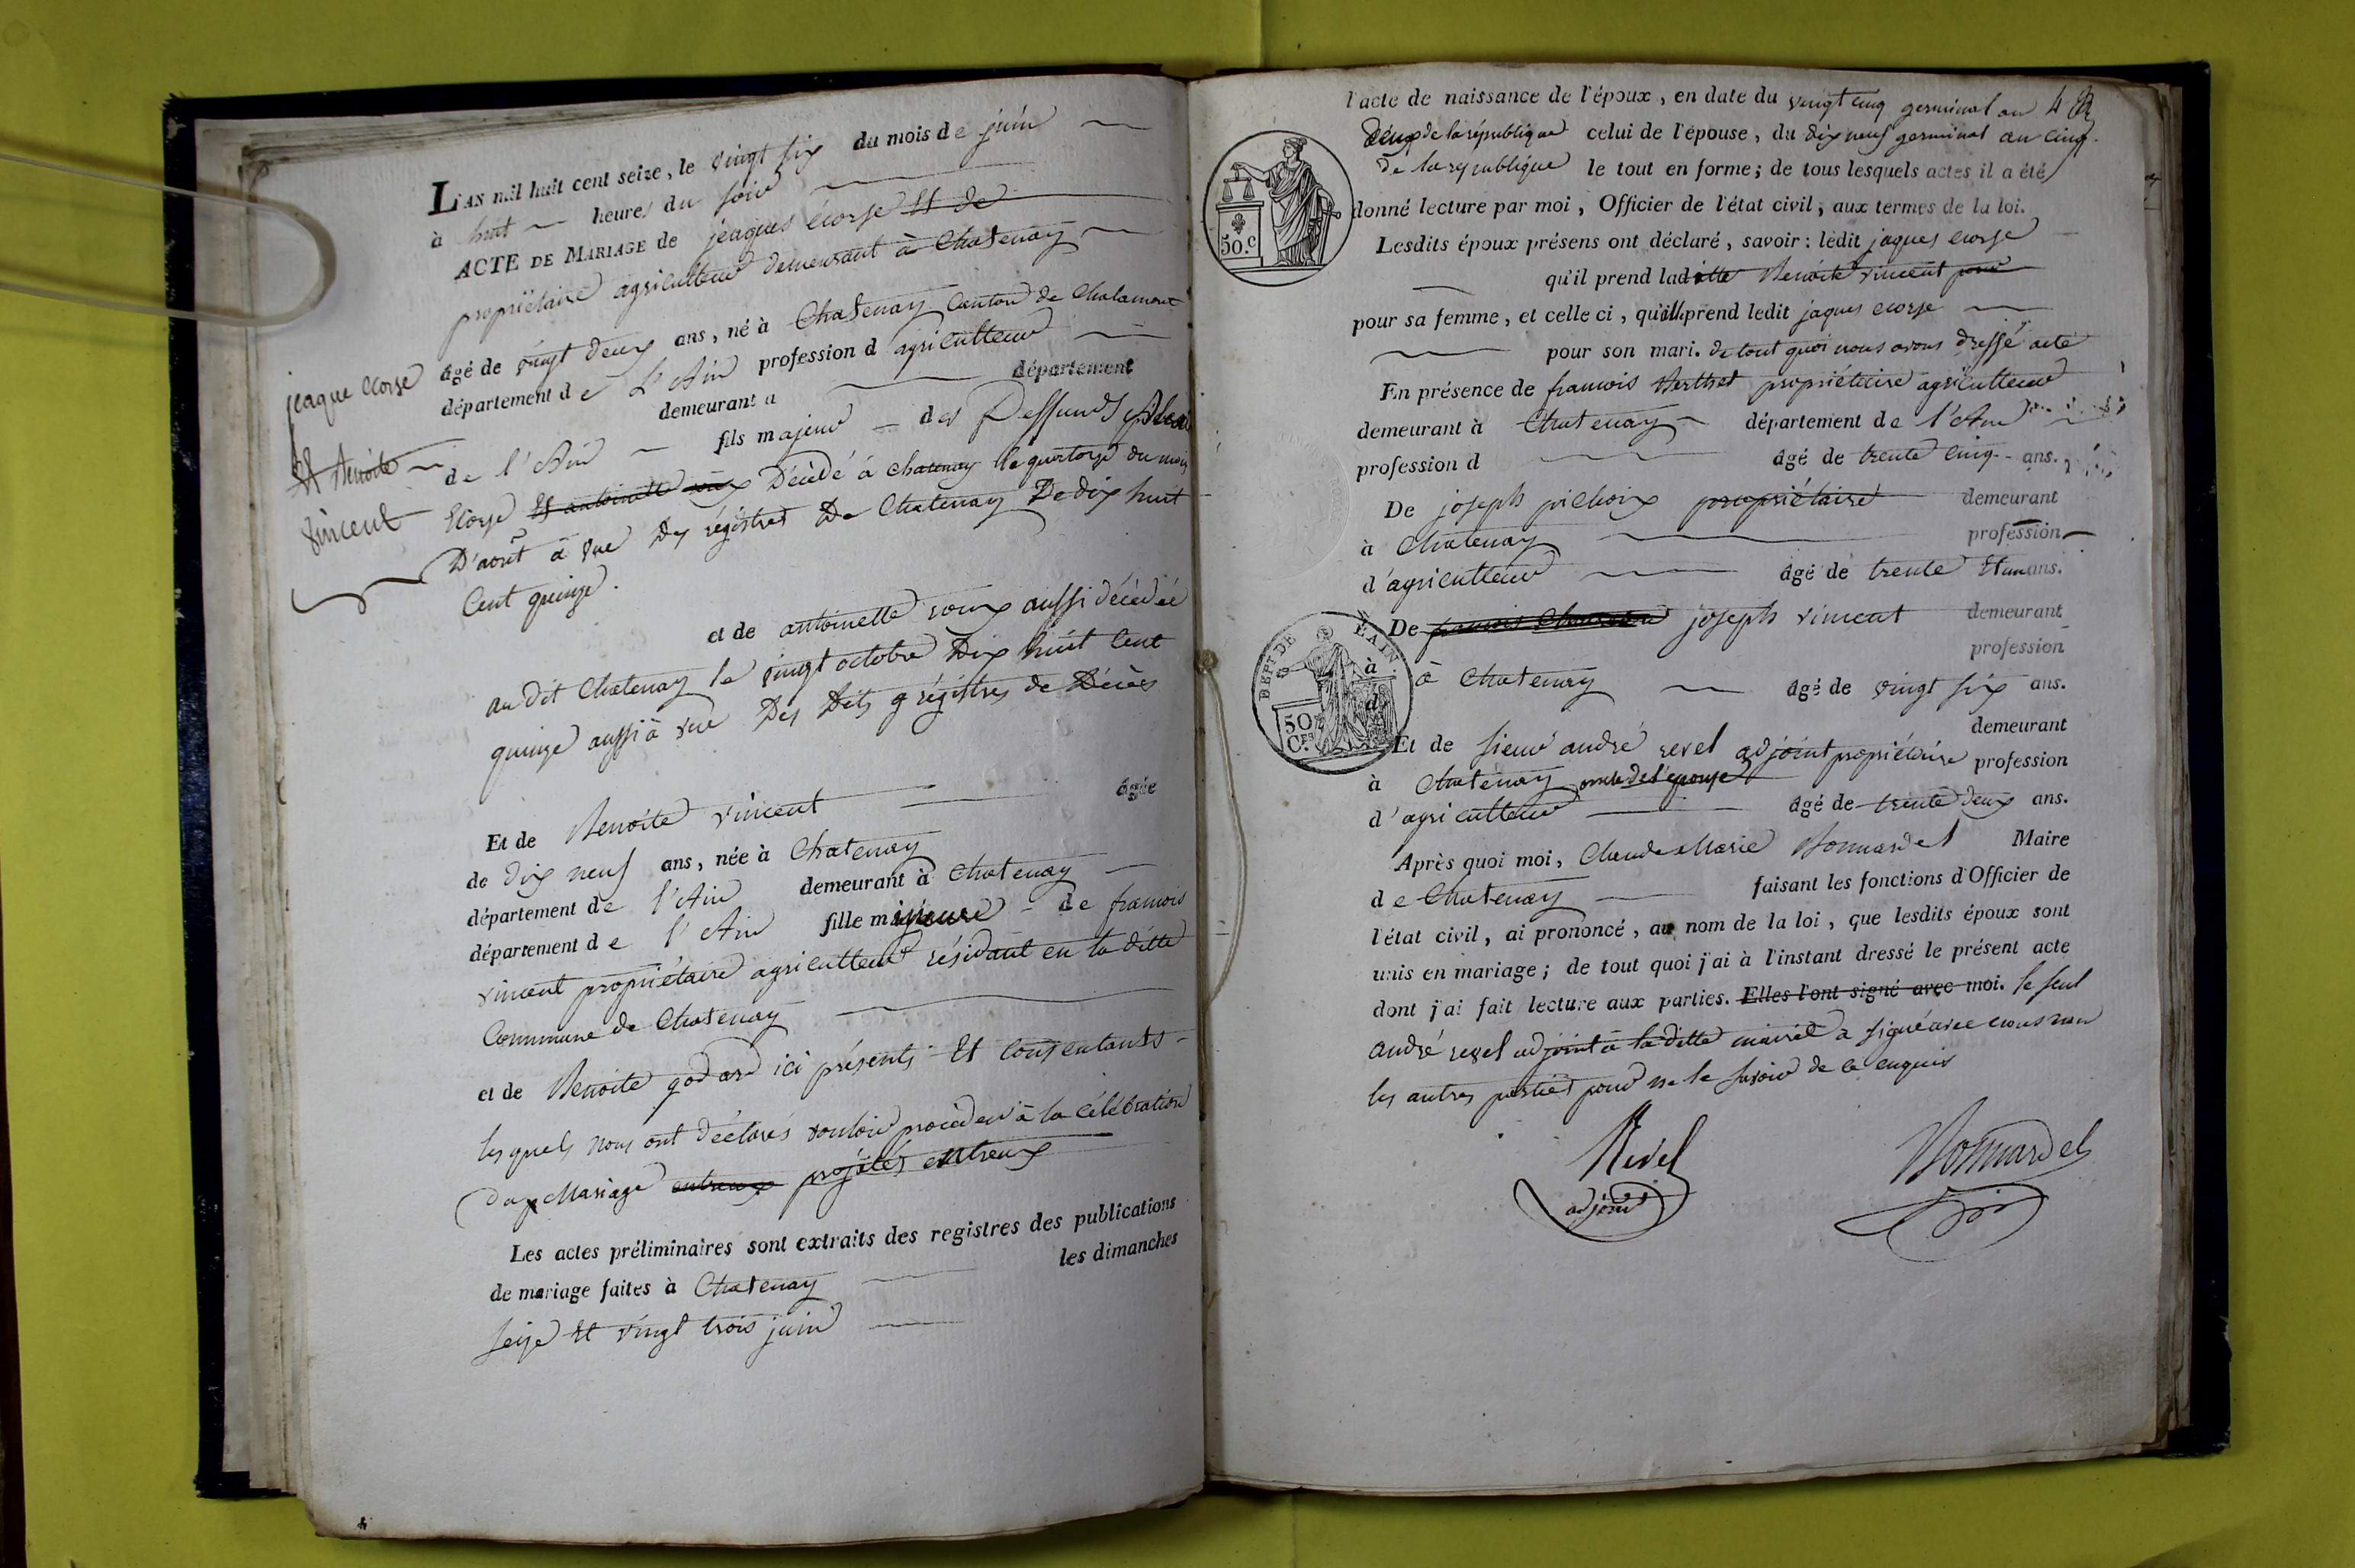 L'AN mil huit cent seize, le vingt six du mois de juin
à huit heures du soir
ACTE DE MARIAGE de jeaques écorse et de
propriétaire agriculteur demeurant à Chatenay
jeaque ecorse
et Benoite
vincent
âgé de vingt deux ans, né à Chatenay Canton de Chalamont
département de L'Ain profession d agriculteur
demeurant à département
de l'Ain fils majeur des Deffunts
Ecorse et antoinette roux Décédé à chatenay le quatorze du mois
D'aout à vue Des régistres De Chatenay De dix huit
Cent quinze.
et de antoinette roux aussi décédée
au dit Chatenay le vingt octobre Dix huit Cent
quinze aussi à vue Des dits régistres de Décès
Et de Benoite vincent âgée
de dix neuf ans, née à Chatenay
département de l'Ain demeurant à Chatenay
département de l'Ain fille mineure de francois
vincent propriétaire agriculteur résidant en la ditte
Commune de Chatenay
et de Benoite godard ici présents Et Consentants
lesquels nous ont déclarés vouloir procéder à la célébration
du Mariage entreux projétés entreux
Les actes préliminaires sont extraits des registres des publications
de mariage faites à Chatenay les dimanches
seize Et vingt trois juin
l'acte de naissance de l'époux, en date du vingt cinq germinal an
deux de la république celui de l'épouse, du dix neuf germinal an cinq
de la republique le tout en forme; de tous lesquels actes il a été
donné lecture par moi, Officier de l'état civil, aux termes de la loi.
50.c
Lesdits époux présens ont déclaré, savoir: ledit jaques ecorse
qu'il prend laditte Benoite vincent pour
pour sa femme, et celle ci, qu'elle prend ledit jaques ecorse
pour son mari. de tout quoi nous avons dressé acte
En présence de francois Berthet propriétaire agriculteur
demeurant à Chatenay département de l'Ain
profession d âgé de trente cinq ans.
De joseph pichoix propriétaire demeurant
à Chatenay profession
d'agriculteur âgé de trente Et un ans.
De joseph vincent demeurant
profession
à Chatenay âgé de vingt six ans.
DEPT DE L'AIN
50
Ces
Et de sieur andré revel adjoint propriétaire demeurant
à Chatenay oncle de l'epouse profession
d'agriculteur âgé de trente deux ans.
Après quoi moi, Claude Marie Bonnardel Maire
de Chatenay faisant les fonctions d'Officier de
l'état civil, ai prononcé, au nom de la loi, que lesdits époux sont
unis en mariage; de tout quoi j'ai à l'instant dressé le présent acte
dont j'ai fait lecture aux parties. Elles l'ont signé avec moi. le seul
André revel adjoint à la ditte mairie a signé avec nous non
les autres parties pour ne le savoir de ce enquis
Revel
adjoint
Bonnardel